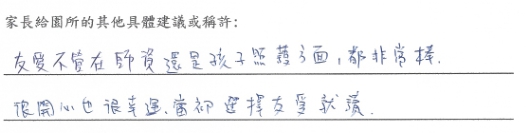 家長給園所的其他具體建議或稱許：
友愛不管在師資還是孩子照護方面，都非常棒.
很開心也很幸運.當初選擇友愛就讀.